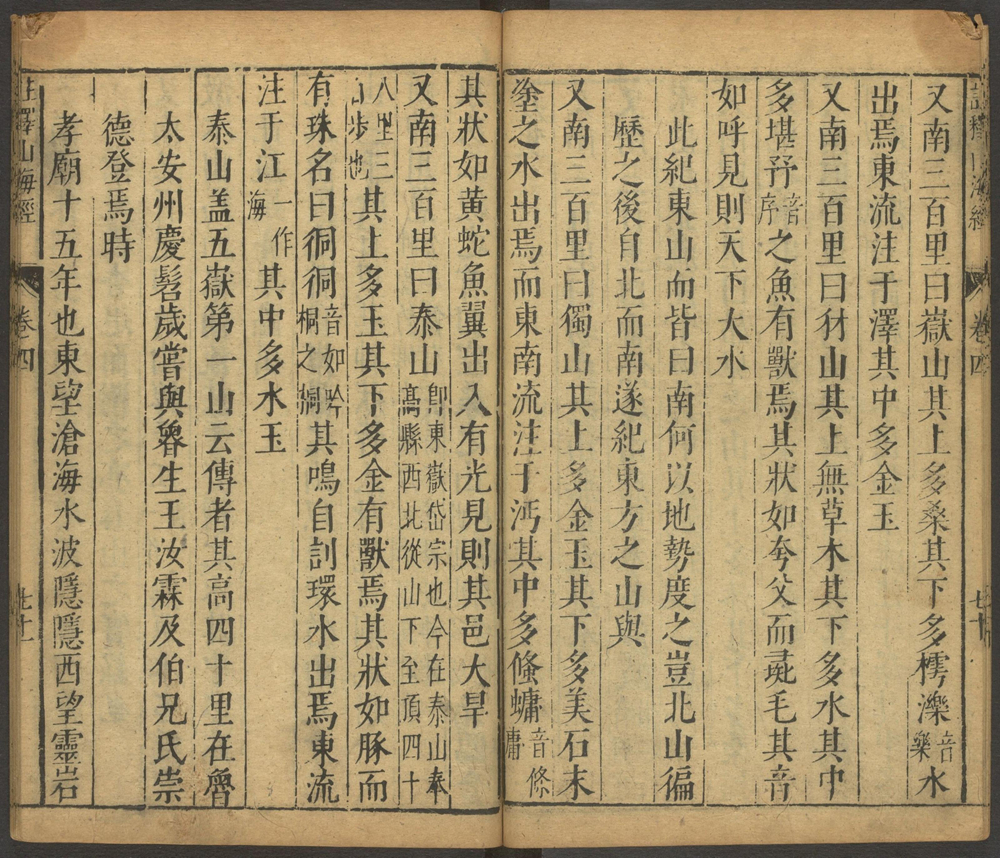 又南三百里曰嶽山其上多桑其下多樗濼音樂水
出焉東流注于澤其中多金玉
又南三百里曰犲山其上無草木其下多水其中
多堪㐨音序之魚有獸焉其狀如夸父而彘毛其音
如呼見則天下大水
此紀東山而皆曰南何以地勢度之豈北山徧
歷之後自北而南遂紀東方之山與
又南三百里曰獨山其上多金玉其下多美石末
塗之水出焉而東南流注于沔其中多䖺蠬音條庸
其狀如黄蛇魚翼出入有光見則其邑大旱
又南三百里曰泰山卽東嶽岱宗也今在泰山奉高縣西北從山下至頂四十
八里三百步也其上多玉其下多金有獸焉其狀如豚而
有珠名曰狪狪音如吟桐之桐其鳴自訆環水出焉東流
注于江一作海其中多水玉
泰山盖五嶽第一山云傳者其高四十里在魯
太安州慶髫歲嘗與魯生王汝霖及伯兄氏崇
德登焉時
孝廟十五年也東望滄海水波隱隱西望靈岩
註釋山海經
卷四
七十